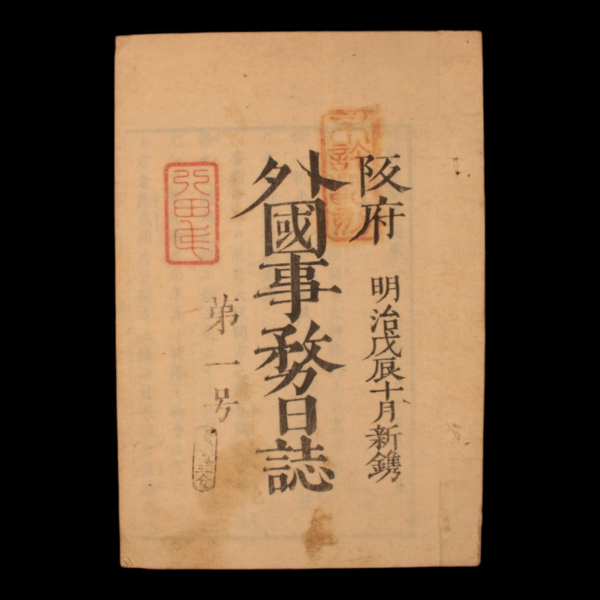 阪府 明治戊辰十月新鐫
外國事務日誌
第一号